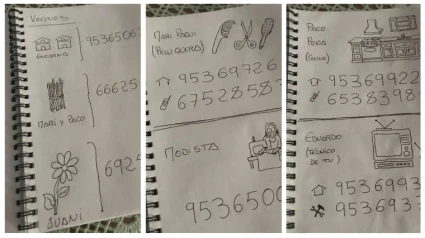 VECINOS
9536506
ENCARNA
66625
MARI Y PACO
6925
JUANI
MARI PAQUI
(PELUQUERA)
95369726
67528587
MODISTA
9536500
PACO
(COCINA)
95369922
6538398
EDUARDO
(TÉCNICO
DE TV)
9536993
953693